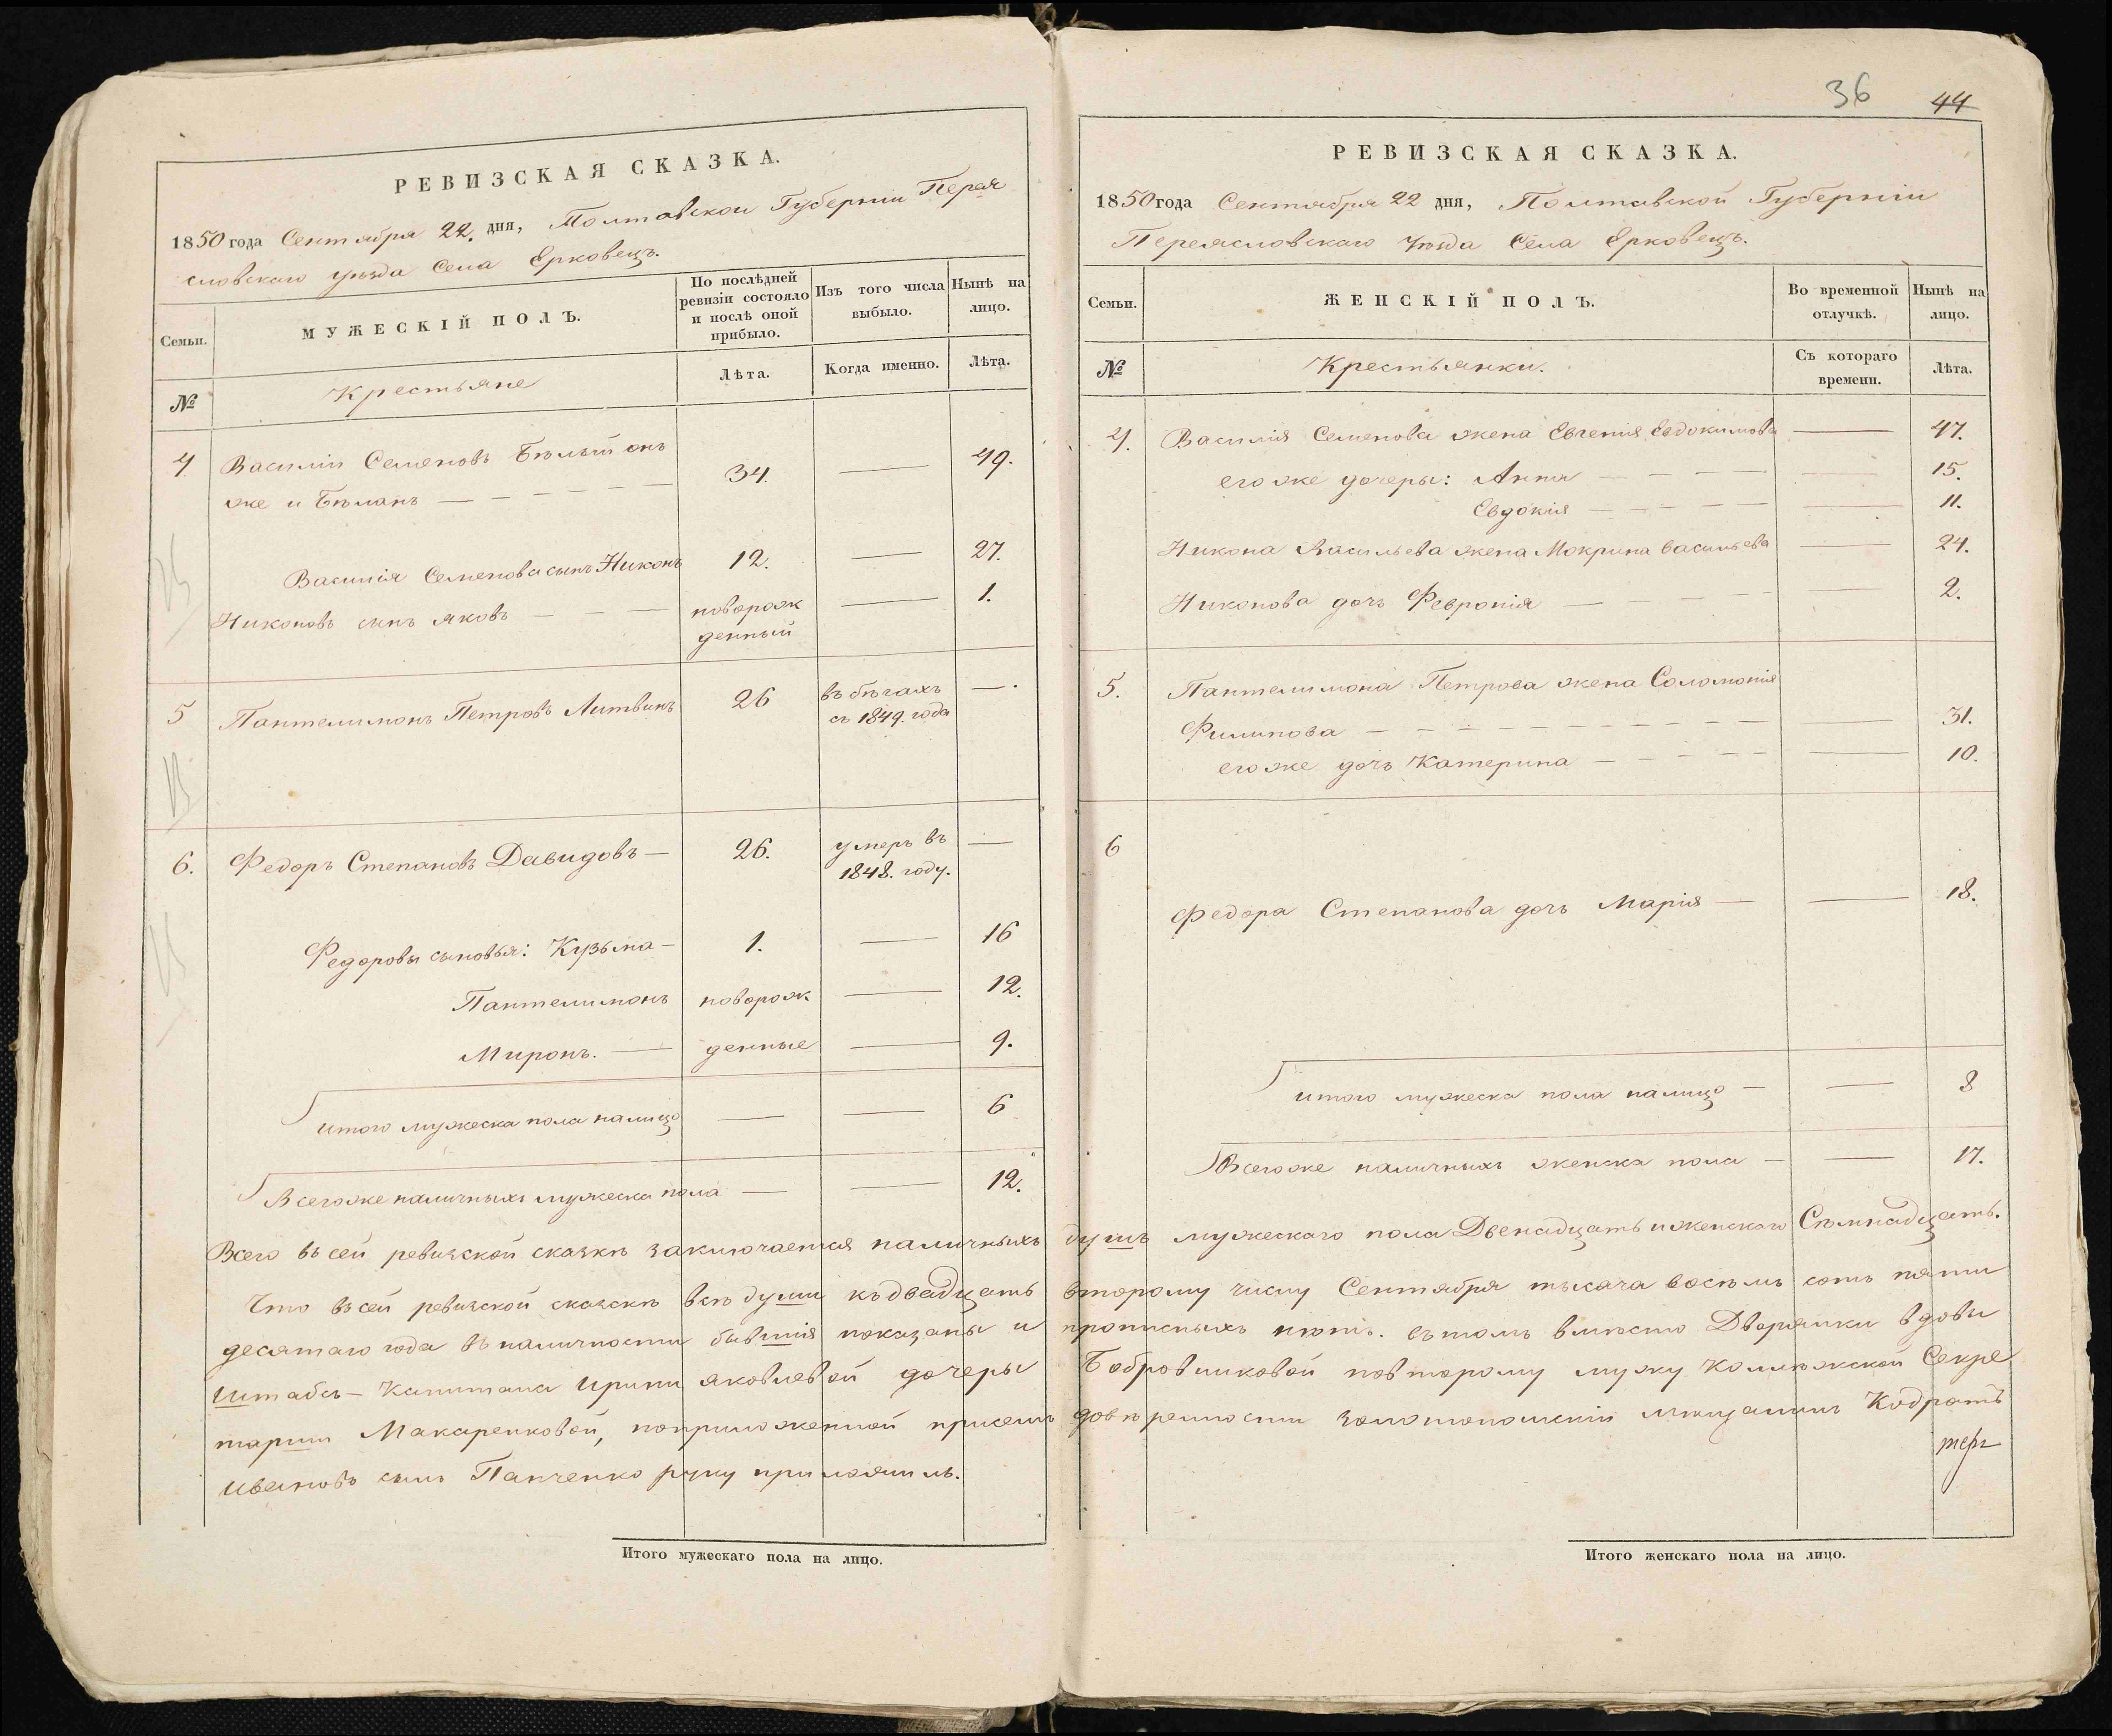 РЕВИЗСКАЯ СКАЗКА.
1850 года Сентября 22. дня, Полтавской Губерніи Перея
словскаго уезда Села Ерковецъ.
Семьи.
МУЖЕСКІЙ ПОЛЪ.
По послѣдней
ревизіи состояло
и послѣ оной
прибыло.
Изъ того числа
выбыло.
Нынѣ на
лицо.
№
Крестьяне
Лѣта.
Когда именно.
Лѣта.
4 Василій Семеновъ Бѣлый онъ
же и Бѣланъ — 34. — 49.
Василія Семенова сынъ Никонъ 12. — 27.
Никоновъ сынъ Яковъ — новорож
денный — 1.
5 Пантелимонъ Петровъ Литвинъ 26 въ бѣгахъ
съ 1849. года — .
6. Федоръ Степановъ Давидовъ — 26. умеръ въ
1848. году. —
Федоровы сыновья: Кузьма — 1. — 16
Пантелимонъ новорож — 12.
Миронъ. — денные — 9.
итого мужеска пола налицо — — 6
Всего же наличныхъ мужеска пола — — 12.
36
44
РЕВИЗСКАЯ СКАЗКА.
1850 года Сентября 22 дня, Полтавской Губерніи
Переясловскаго Уѣзда Села Ерковецъ.
Семьи.
ЖЕНСКІЙ ПОЛЪ.
Во временной
отлучкѣ.
Нынѣ на
лицо.
№
Крестьянки.
Съ котораго
времени.
Лѣта.
4. Василія Семенова жена Евгенія Евдокимова — 47.
его же дочеры: Анна — — 15.
Евдокія — — 11.
Никона Васильева жена Мокрина Васильева — 24.
Никонова дочь Февронія — — 2.
5. Пантелимона Петрова жена Соломонія
Филипова — — 31.
его же дочь Катерина — — 10.
6
Федора Степанова дочь Марія — — 18.
итого мужеска пола налицо — — 8
Всего же наличныхъ женска пола — — 17.
Всего въ сей ревизской сказкѣ заключается наличныхъ душъ мужескаго пола Двенадцать и женскаго Сѣмнадцать.
Что въ сей ревизской сказкѣ всѣ души къ двадцать второму числу Сентября тысяча восѣмь сотъ пяти
десятаго года въ наличности бывшія показаны и прописныхъ нѣтъ. въ томъ вмѣсто Дворянки вдовы
Штабсъ-Капитана Ирины Яковлевой дочеры Бобровниковой по второму мужу Коллежской Секре
тарши Макаренковой, по приложенной при семъ довѣренности золотоношскій мѣщанинъ Кодратъ
Ивановъ сынъ Панченко руку приложилъ.
Итого мужескаго пола на лицо.
Итого женскаго пола на лицо.